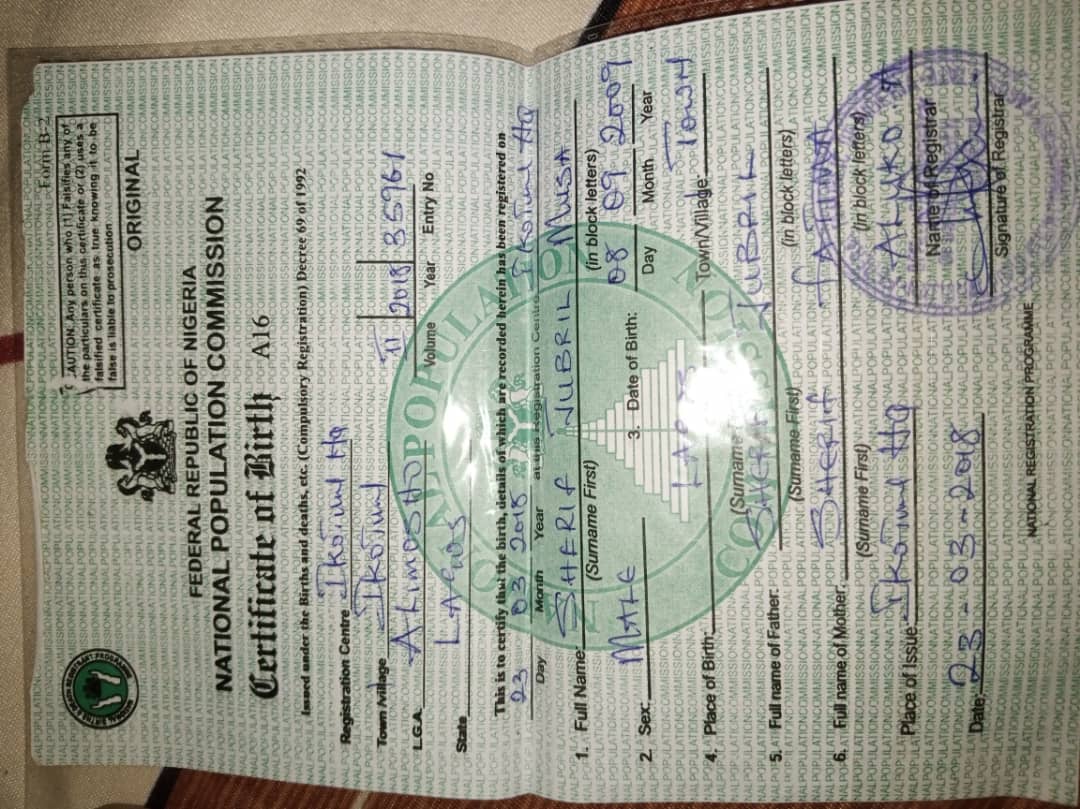 Form B-2
CAUTION: Any person who (1) Falsifies any of
the particulars on this certificate or (2) uses a
falsified certificate as true knowing it to be
false is liable to prosecution
ORIGINAL
FEDERAL REPUBLIC OF NIGERIA
NATIONAL POPULATION COMMISSION
Certificate of Birth A16
Issued under the Births and deaths, etc. (Compulsory Registration) Decree 69 of 1992
Registration Centre Ikotun HQ
Town / Village Ikotun II 2018 85961
L.G.A. ALIMOSHO Volume Year Entry No
State LAGOS
This is to certify that the birth, details of which are recorded herein has been registered on
23 03 2018 Ikotun HQ
Day Month Year at this Registration Centre
1. Full Name: SHERIF JUBRIL MUSA
(Surname First) (in block letters)
2. Sex: MALE 3. Date of Birth: 08 09 2009
Day Month Year
4. Place of Birth: LAGOS Town/Village: TOWN
(Surname
5. Full name of Father: SHERIF JUBRIL
(Surname First) (in block letters)
6. Full name of Mother: SHERIF FATIMA
(Surname First) (in block letters)
Place of Issue: Ikotun HQ
Name of Registrar
Date: 23-03-2018
Signature of Registrar
NATIONAL REGISTRATION PROGRAMME